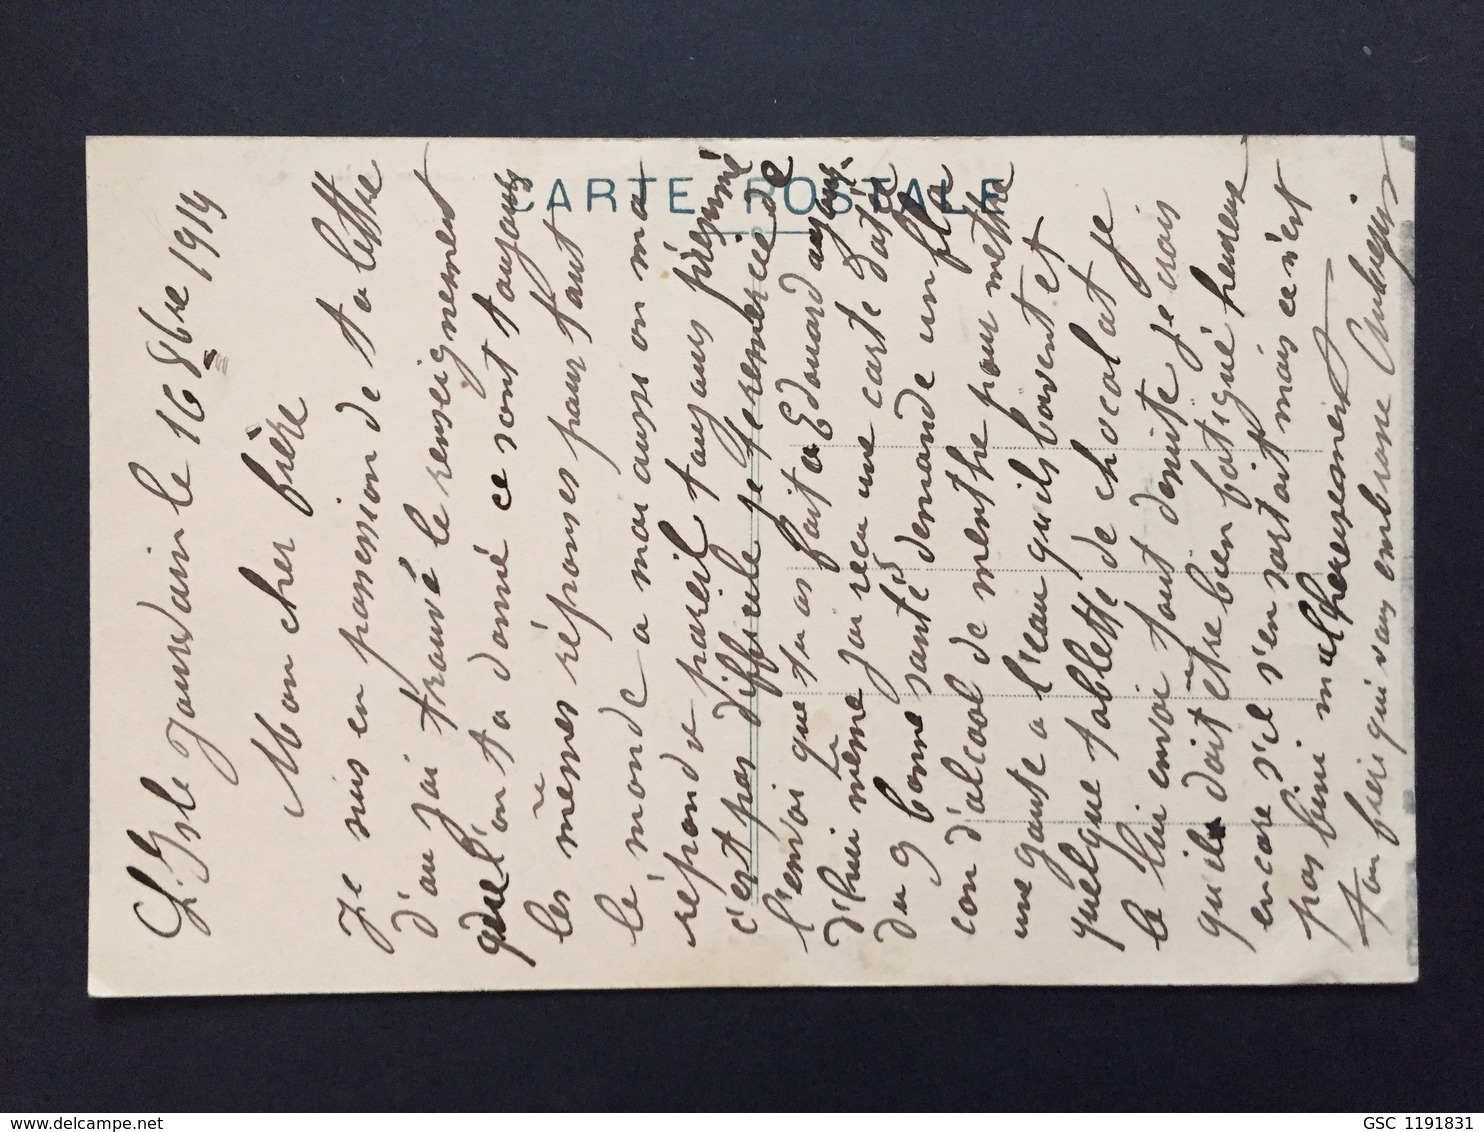 CARTE POSTALE
L'Isle Jourdain le 16 8bre 1914
Mon cher frère
Je suis en possession de ta lettre
d'ou jai trouvé le renseignement
quel'on ta donné ce sont toujours
les mêmes réponses pour tout
le monde a moi aussi on ma
répondu pareil toujours présumé
c'est pas difficile je te remercie de
l'envoi que tu as fait a Edouard aujour-
d'hui même jai recu une carte daté
du 9 bonne santé demande un fla
con d'alcool de menthe pour mettre
une goute a l'eau qu'ils boivent et
quelque tablette de chocolat je
le lui envoi tout desuite je crois
qu'il doit être bien fatigué heureux
encore s'il s'en sortait mais ce n'est
pas bien malheureusement
ton frère qui vous embrasse
delcampe.net
GSC 1191831